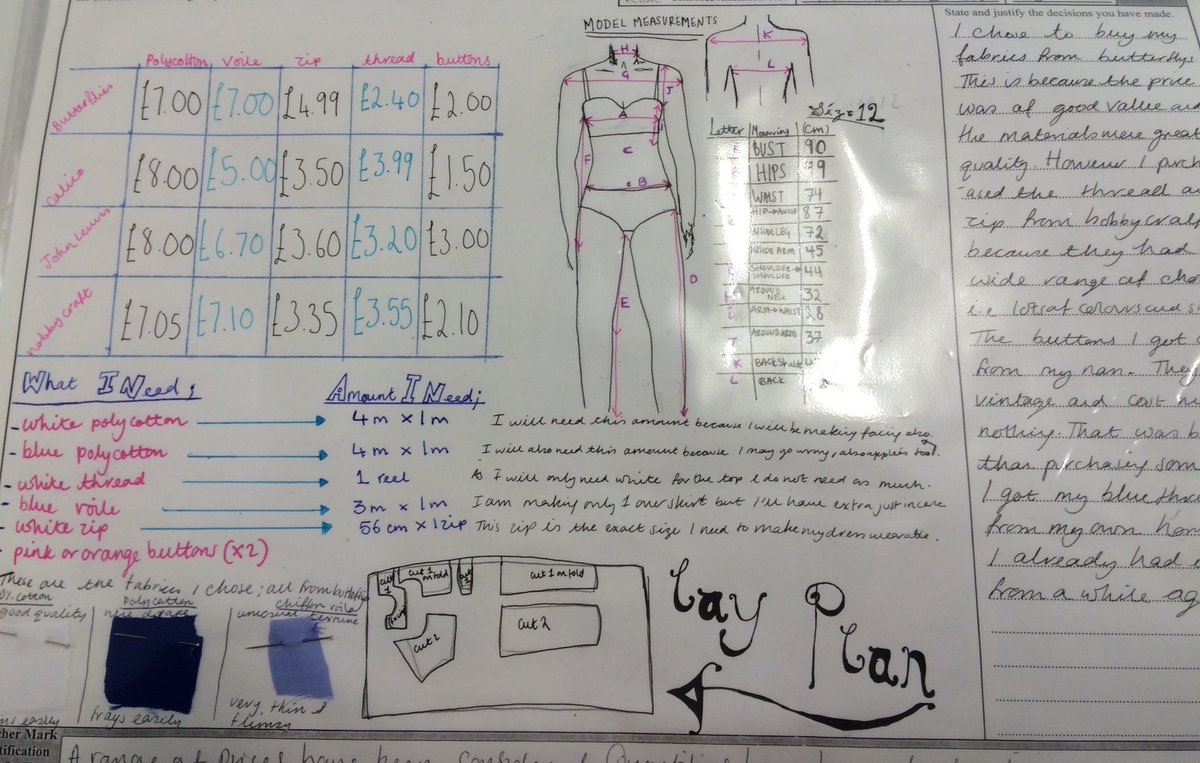 MODEL MEASUREMENTS
Polycotton Voile zip thread buttons
Butterflies £7.00 £7.00 £4.99 £2.40 £2.00
Calico £8.00 £5.00 £3.50 £3.99 £1.50
John Lewis £8.00 £6.70 £3.60 £3.20 £3.00
hobbycraft £7.05 £7.10 £3.35 £3.55 £2.10
H
G
J
A
I
C
F
B
D
E
K
L
Size 12
Letter Measuring (cm)
BUST 90
HIPS
WAIST 74
HIP → ANKLE 87
INSIDE LEG 72
INSIDE ARM 45
SHOULDER → SHOULDER 44
AROUND NECK 32
ARM → WAIST 28
AROUND ARM 37
K BACK
L BACK
What I Need; Amount I Need;
- white polycotton 4m x 1m I will need this amount because I will be making facing also.
- blue polycotton 4m x 1m I will also need this amount because I may go wrong, also applies too.
- white thread 1 reel As I will only need white for the top I do not need as much.
- blue voile 3m x 1m I am making only 1 over skirt but I'll have extra just incase
- white zip 56cm x 1zip This zip is the exact size I need to make my dress wearable.
- pink or orange buttons (x2)
These are the fabrics I chose; all from
cotton
good quality
easily
polycotton
nice drape
frays easily
chiffon voile
unusual texture
very thin &
flimsy
cut 1 m fold
cut 1 m fold
cut 2
cut 2
Lay Plan
State and justify the decisions you have made.
I chose to buy my
fabrics from butterflies
This is because the price
was of good value and
the materials were great
quality. However I
the thread
zip from hobbycraft
because they had
wide range of
i.e lots of colours and
The buttons I got
from my nan. They
vintage and cost
nothing. That was
than purchasing
I got my blue
from my own
I already had
from a while
A range of prices have been